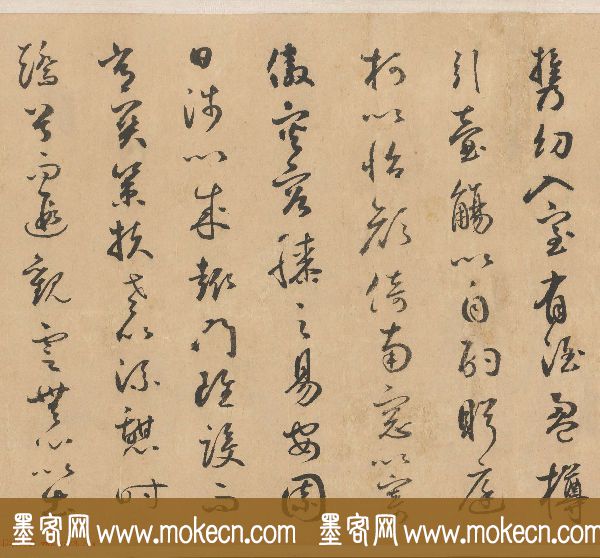 攜幼入室有酒盈樽
引壺觴以自酌眄庭
柯以怡顏倚南窓以寄
傲審容膝之易安園
日涉以成趣門雖設而
常關策扶老以流憩時
矯首而遐觀雲無心以出
墨客网 www.mokecn.com 墨客网 www.mokecn.com